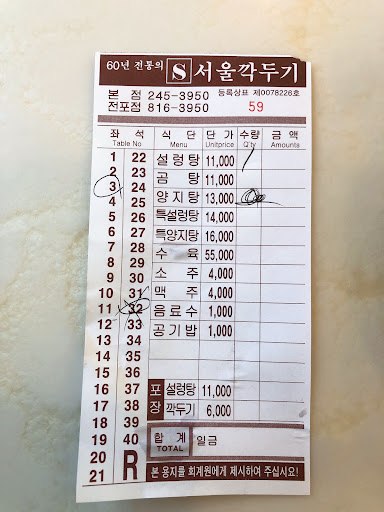 60년 전통의 S 서울깍두기
본 점 245-3950 등록상표 제0078226호
전포점 816-3950 59
좌 석 식 단 단가 수량 금 액
Table No Menu Unitprice Q'ty Amounts
1 22 설렁탕 11,000 /
2 23 곰 탕 11,000
3 24
4 25 양지탕 13,000
5 26 특설렁탕 14,000
6 27 특양지탕 16,000
7 28 수 육 55,000
8 29
9 30 소 주 4,000
10 31 맥 주 4,000
11 32 음료수 1,000
12 33 공기밥 1,000
13 34
14 35
15 36
16 37 포장 설렁탕 11,000
17 38 깍두기 6,000
18 39
19 40 합 계 일금
TOTAL
20
21 R 본 용지를 회계원에게 제시하여 주십시요!